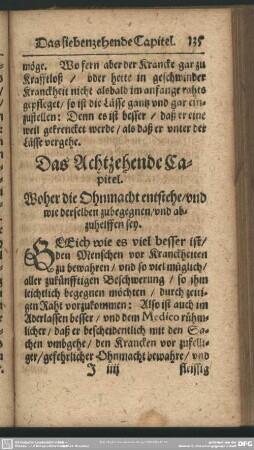 Das siebenzehende Capitel. 135
möge. Wo fern aber der Krancke gar zu
Krafftloß / oder hette in geschwinder
Kranckheit nicht alsbald im anfange rahts
gepfleget / so ist die Lässe gantz vnd gar ein-
zustellen: Denn es ist besser / daß er eine
weil gekrencket werde / als daß er vnter der
Lässe vergehe.
Das Achtzehende Ca-
pitel.
Woher die Ohnmacht entstehe / vnd
wie derselben zubegegnen / vnd ab-
zuhelffen sey.
GLeich wie es viel besser ist /
den Menschen vor Kranckheiten
zu bewahren / vnd so viel müglich /
aller zukünfftigen Beschwerung / so ihm
leichtlich begegnen möchten / durch zeiti-
gen Raht vorzukommen: Also ist auch im
Aderlassen besser / vnd dem Medico rühm-
licher / daß er bescheidentlich mit den Sa-
chen vmbgehe / den Krancken vor zufelli-
ger / gefehrlicher Ohnmacht bewahre / vnd
J iiij fleissig